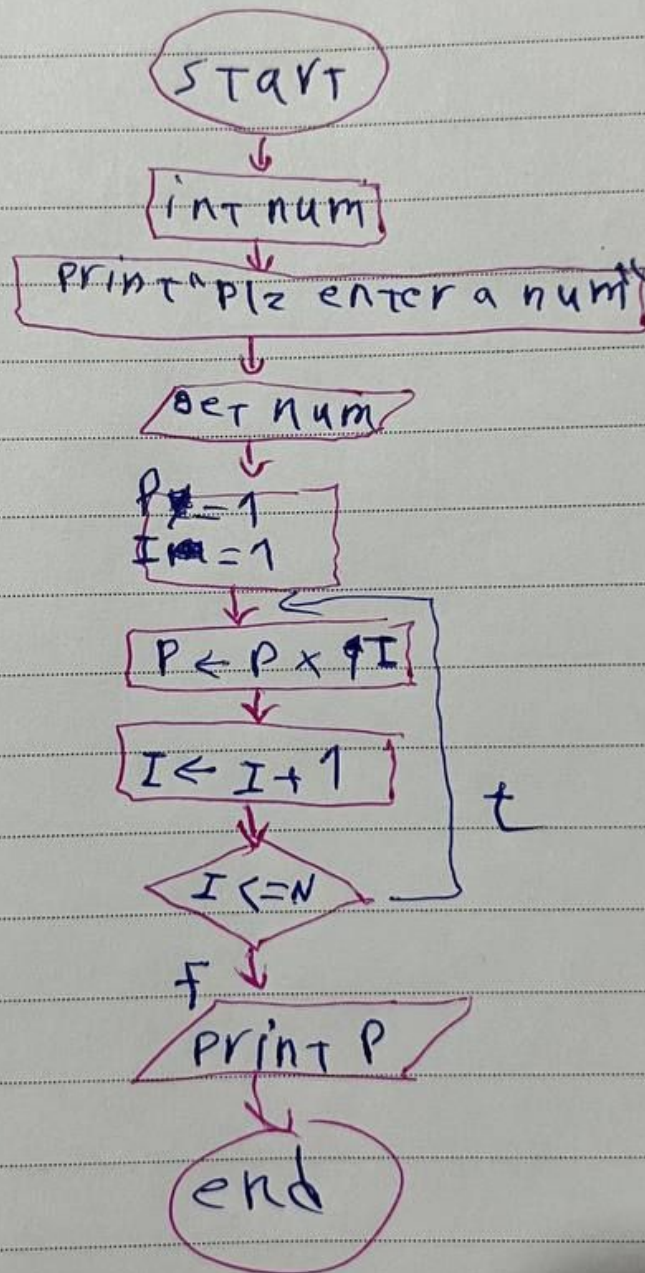 START
int num
print "plz enter a num"
get num
P = 1
I = 1
P ← P × I
I ← I + 1
t
I <= N
f
print P
end